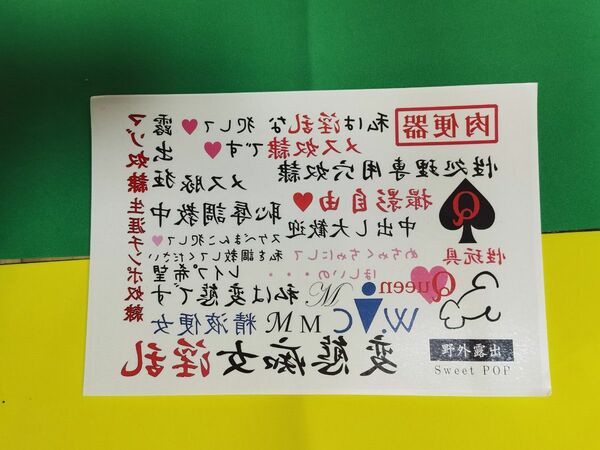 肉便器
私は淫乱な
犯して♥
メス奴隷です♥
露出狂
マゾ奴隷
生涯チンポ奴隷
性処理専用穴奴隷
メス豚
撮影自由♥
恥辱調教中
中出し大歓迎
Q
性玩具
スケベまんこ犯して♥
私を調教してください
めちゃくちゃにして
ほしいの・・・
レイプ希望
Queen
私は変態です
M
精液便女
M M
W.C
変態痴女
淫乱
野外露出
Sweet POP